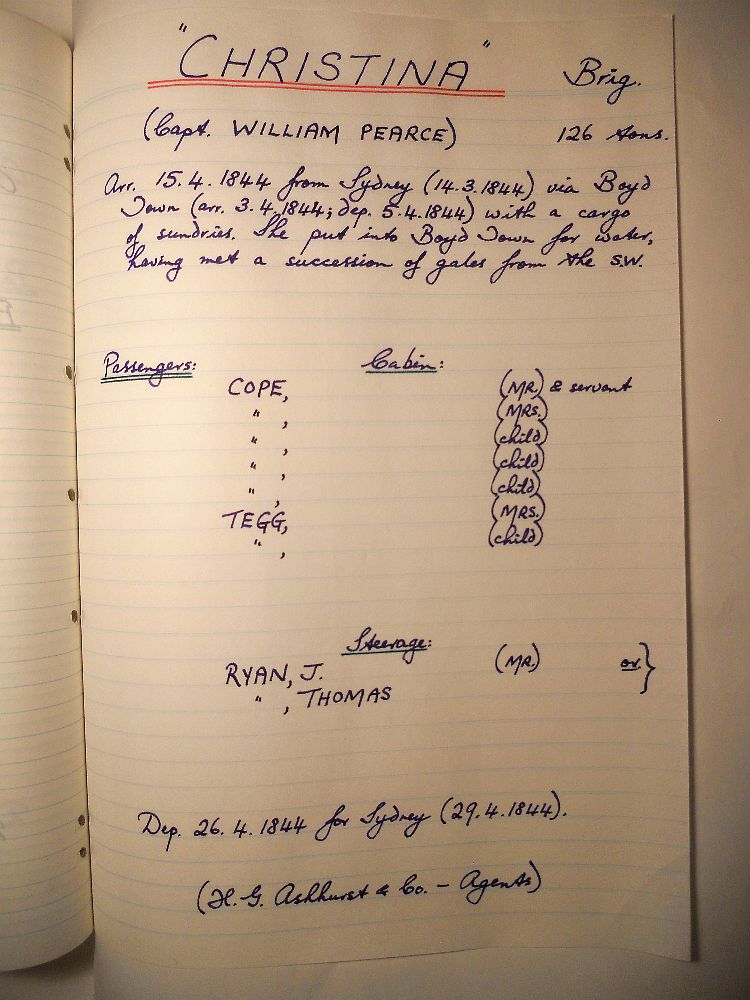 "CHRISTINA" Brig.
(Capt. WILLIAM PEARCE) 126 tons.
Arr. 15.4.1844 from Sydney (14.3.1844) via Boyd
Town (arr. 3.4.1844; dep. 5.4.1844) with a cargo
of sundries. She put into Boyd Town for water,
having met a succession of gales from the S.W.
Passengers: Cabin:
COPE, (MR.) & servant
" , (MRS.)
" , (child)
" , (child)
" , (child)
TEGG, (MRS.)
" , (child)
Steerage:
RYAN, J. (MR.) or }
" , THOMAS
Dep. 26.4.1844 for Sydney (29.4.1844).
(H.G. Ashhurst & Co. - Agents)